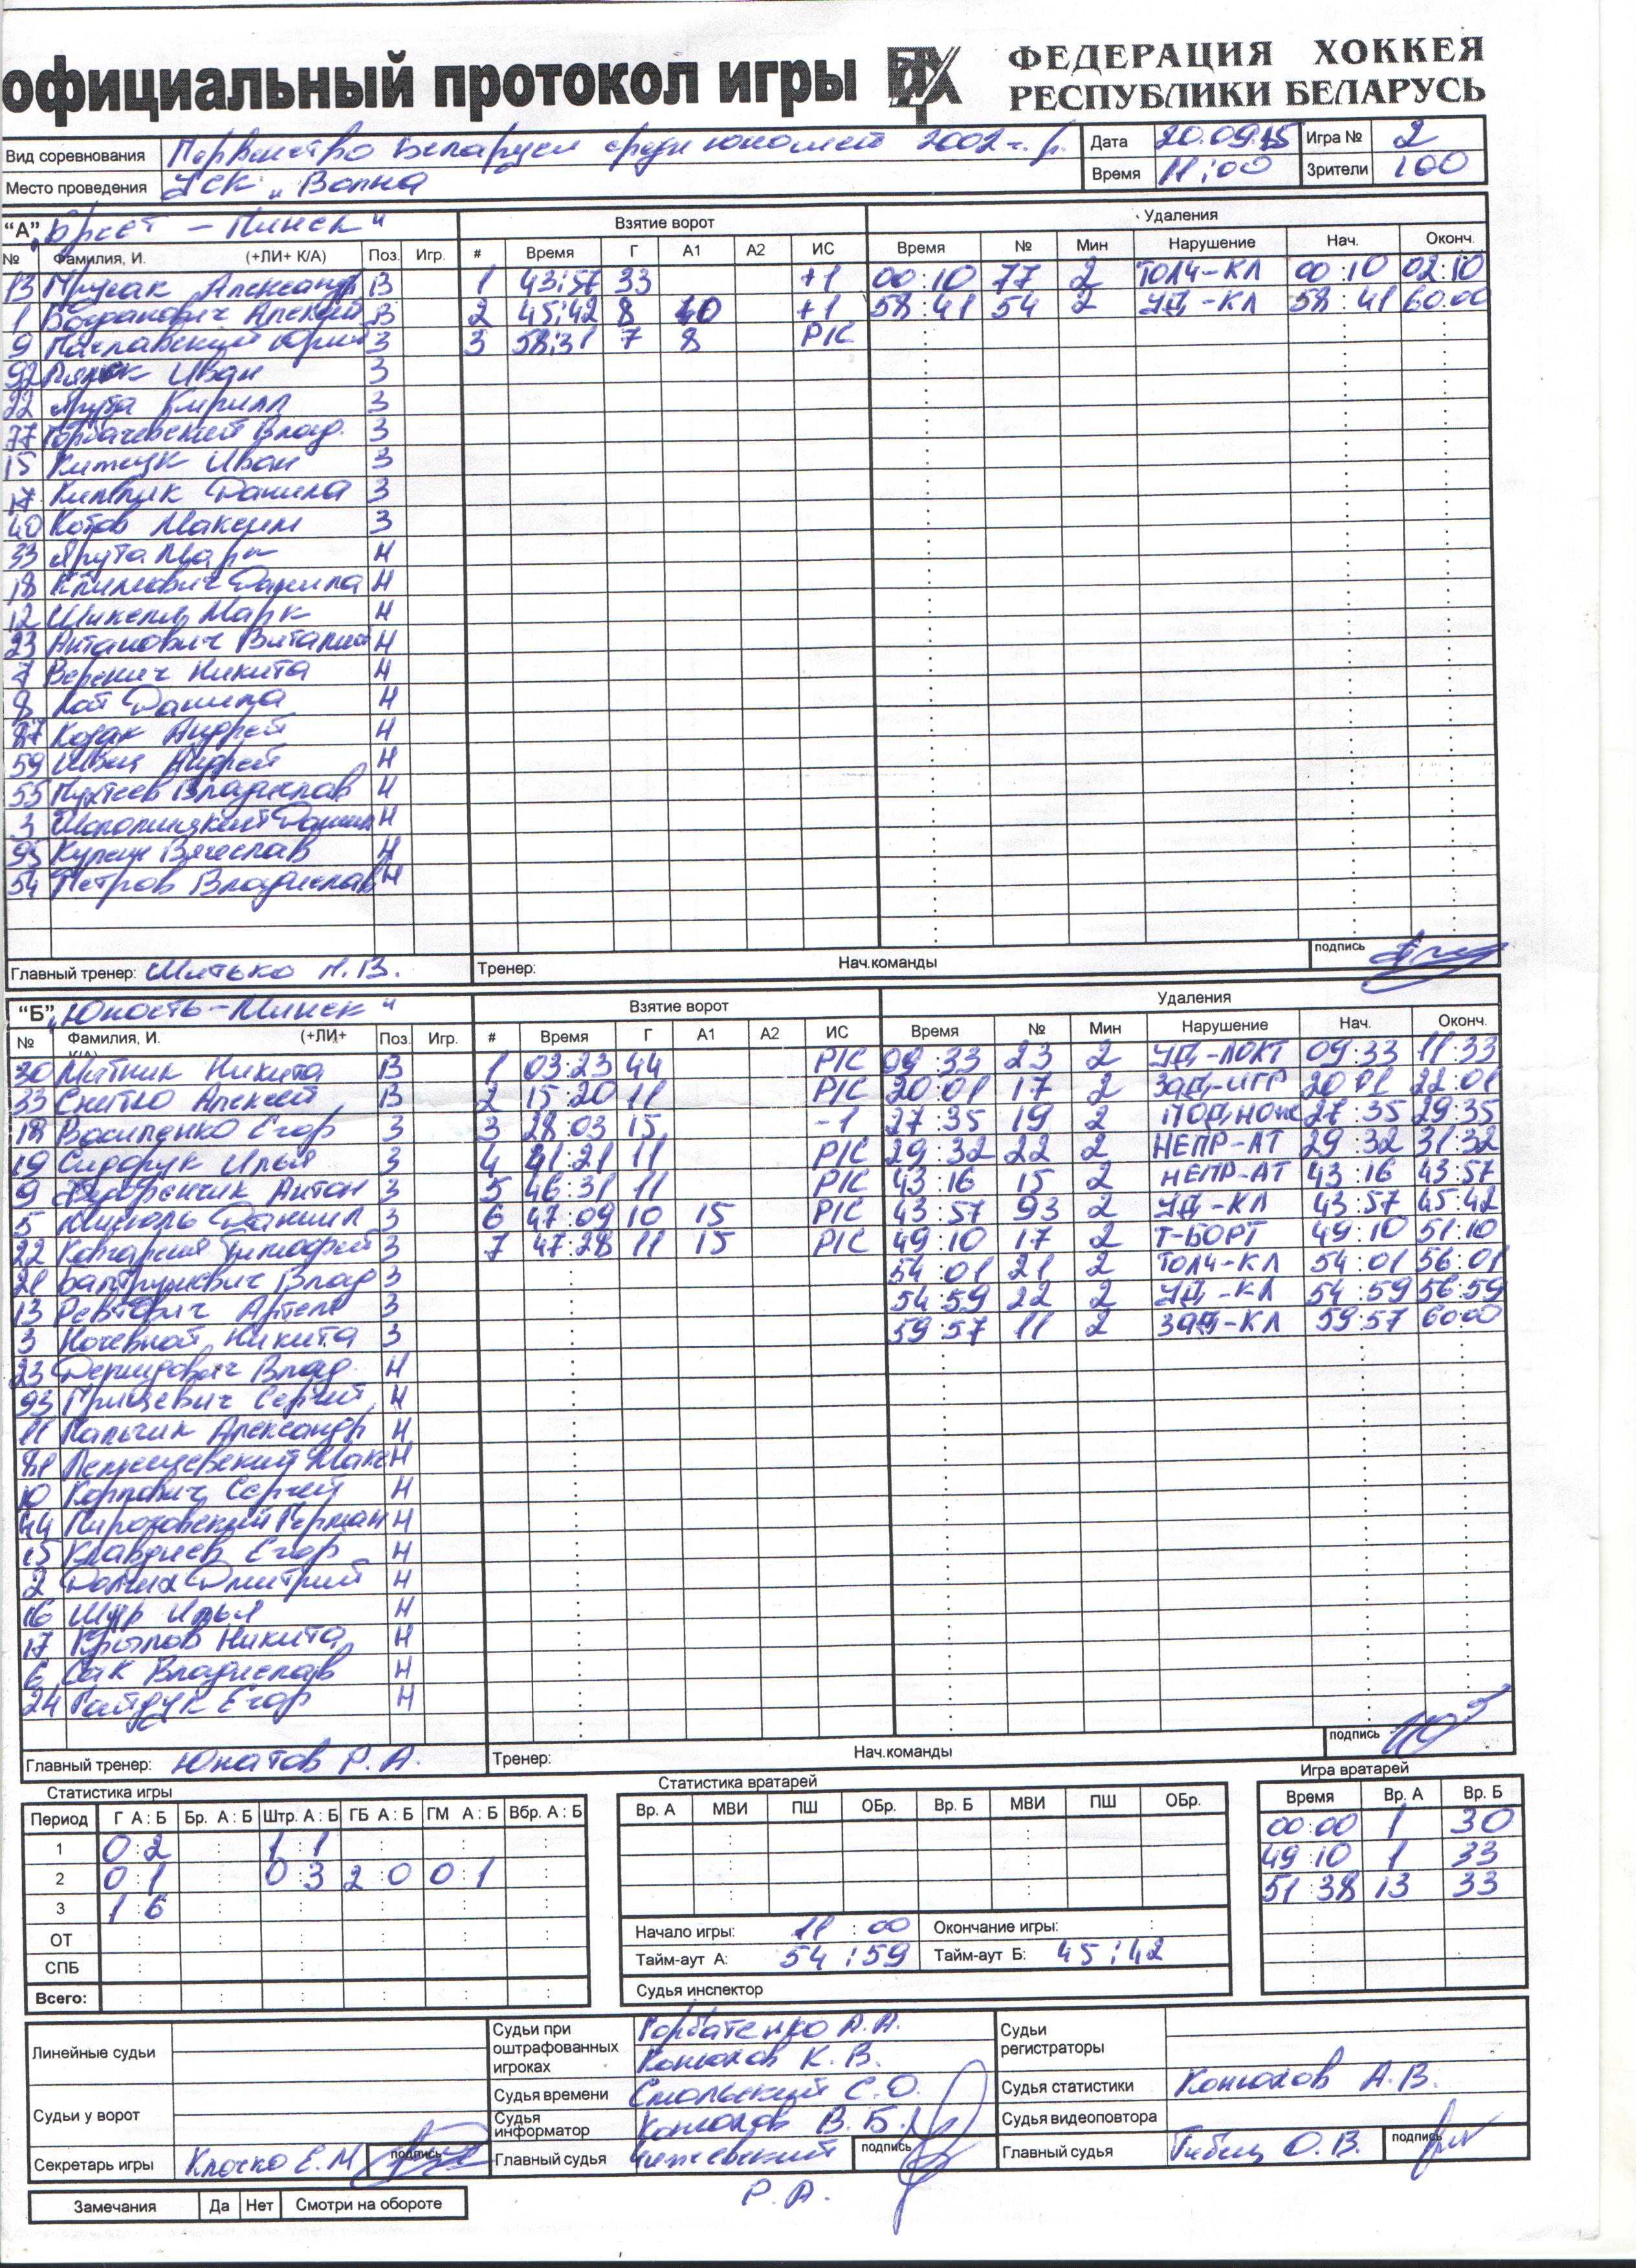 официальный протокол игры ФЕДЕРАЦИЯ ХОККЕЯ РЕСПУБЛИКИ БЕЛАРУСЬ
Вид соревнования Первенство Беларуси среди юношей 2002 г.р. Дата 20.09.15 Игра № 2
Место проведения УСК "Волна" Время 11:00 Зрители 100
"А" "Брест - Пинск" Взятие ворот Удаления
№ Фамилия, И. (+ЛИ+ К/А) Поз. Игр. # Время Г А1 А2 ИС Время № Мин Нарушение Нач. Оконч.
13 Александр В 1 43:57 33 +1 00:10 77 2 ТОЛЧ-КЛ 00:10 02:10
1 Богданович Алексей В 2 45:42 8 40 +1 58:41 54 2 УД-КЛ 58:41 60:00
9 Юрий З 3 58:31 7 8 Р/С
92 Иван З
22 Ярута Кирилл З
77 Горбачевский Влад. З
15 Иван З
17 Данила З
40 Котов Максим З
33 Ярута Марк Н
18 Климович Данила Н
12 Шикеля Марк Н
23 Антанович Виталий Н
7 Веренич Никита Н
8 Кот Данила Н
87 Козак Андрей Н
59 Швец Андрей Н
55 Пухтеев Владислав Н
3 Н
95 Вячеслав Н
54 Петров Владислав Н
Главный тренер: Митько Тренер: Нач.команды подпись
"Б" "Юность-Минск" Взятие ворот Удаления
№ Фамилия, И. (+ЛИ+ К/А) Поз. Игр. # Время Г А1 А2 ИС Время № Мин Нарушение Нач. Оконч.
30 Мытник Никита В 1 03:23 44 Р/С 09:33 23 2 УД-ЛОКТ 09:33 11:33
33 Снитко Алексей В 2 15:20 11 Р/С 20:01 17 2 ЗАД-ИГР 20:01 22:01
18 Василенко Егор З 3 28:03 15 -1 27:35 19 2 ПОДНОЖ 27:35 29:35
19 Сидорук Илья З 4 41:21 11 Р/С 29:32 22 2 НЕПР-АТ 29:32 31:32
9 Антон З 5 46:31 11 Р/С 43:16 15 2 НЕПР-АТ 43:16 43:57
5 Даниил З 6 47:09 10 15 Р/С 43:57 93 2 УД-КЛ 43:57 45:42
22 Тимофей З 7 47:28 11 15 Р/С 49:10 17 2 Т-БОРТ 49:10 51:10
21 Балтрушевич Влад З 54:01 21 2 ТОЛЧ-КЛ 54:01 56:01
13 Ревтович Артем З 54:59 22 2 УД-КЛ 54:59 56:59
3 Кочевной Никита З 59:57 11 2 ЗАД-КЛ 59:57 60:00
23 Демидович Влад. Н
93 Грицевич Сергей Н
11 Пальчик Александр Н
81 Н
10 Карпович Сергей Н
44 Пироговский Герман Н
15 Клавдиев Егор Н
2 Дмитрий Н
16 Шур Илья Н
17 Крылов Никита Н
6 Сак Владислав Н
24 Гайдук Егор Н
Главный тренер: Юнатов Р.А. Тренер: Нач.команды подпись
Статистика игры Статистика вратарей Игра вратарей
Период Г А:Б Бр. А:Б Штр. А:Б ГБ А:Б ГМ А:Б Вбр. А:Б Вр. А МВИ ПШ ОБр. Вр. Б МВИ ПШ ОБр. Время Вр. А Вр. Б
1 0:2 1:1 00:00 1 30
2 0:1 0:3 2:0 0:1 49:10 1 33
3 1:6 51:38 13 33
ОТ Начало игры: 11:00 Окончание игры:
СПБ Тайм-аут А: 54:59 Тайм-аут Б: 45:42
Всего: Судья инспектор
Линейные судьи Судьи при оштрафованных игроках Горбатенко А.А. Конюхов К.В. Судьи регистраторы
Судьи у ворот Судья времени Смольский С.О. Судья статистики Конюхов А.В.
Судья информатор Конюхов В.Б. Судья видеоповтора
Секретарь игры Клочко Е.М. подпись Главный судья Р.А. подпись Главный судья О.В. подпись
Замечания Да Нет Смотри на обороте